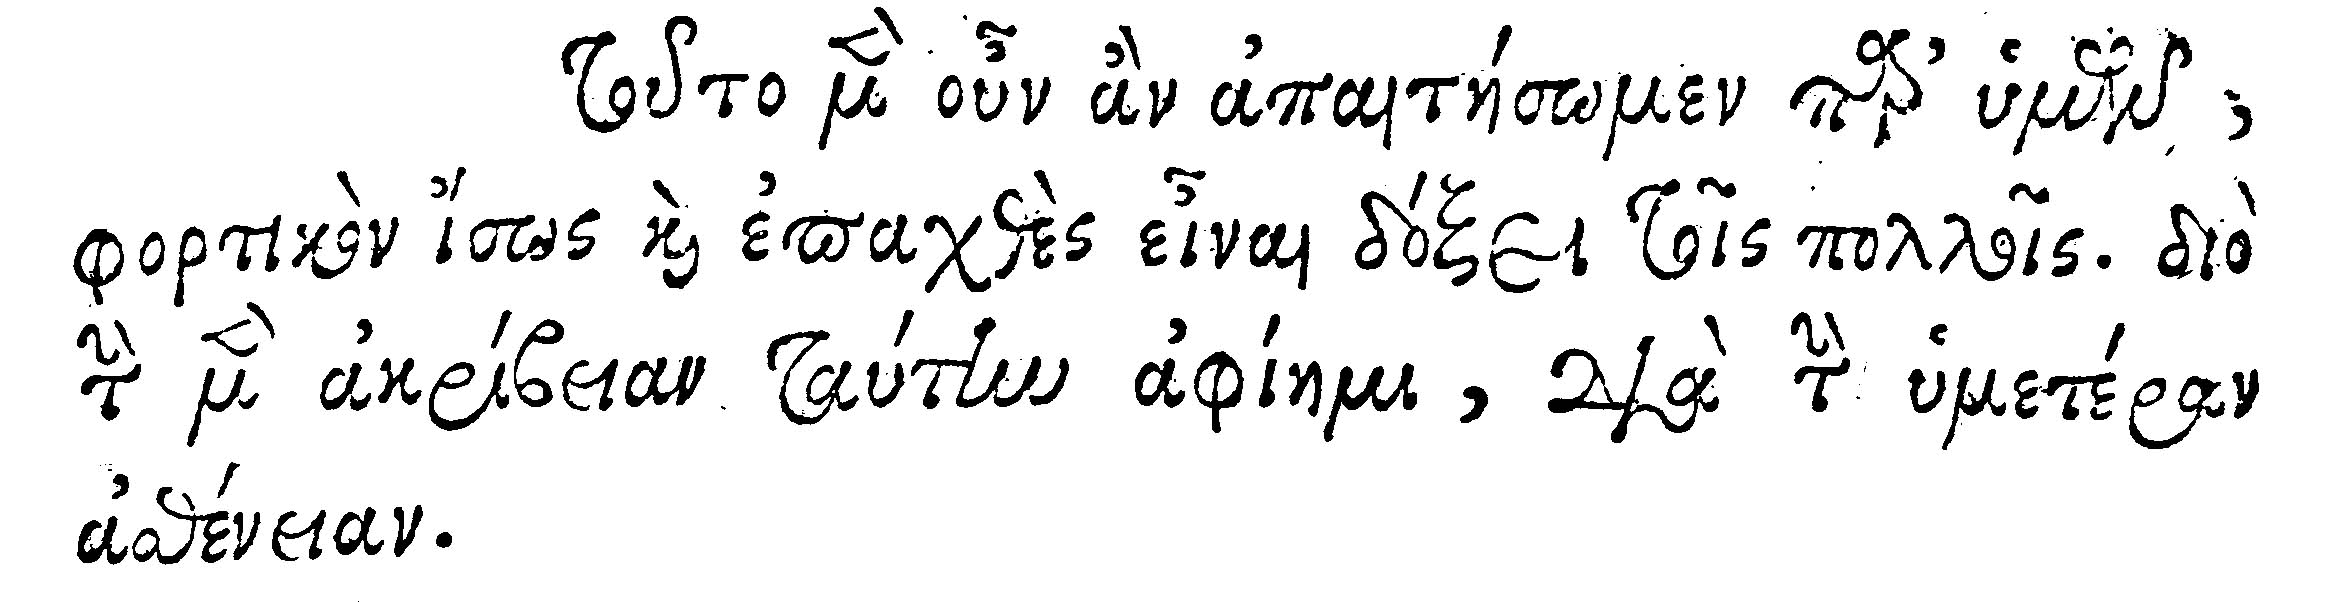 τοῦτο μὲν οὖν ἂν ἀπαιτήσωμεν παρ’ ὑμῶν,
φορτικὸν ἴσως καὶ ἐπαχθὲς εἶναι δόξει τοῖς πολλοῖς. διὸ
τὴν μὲν ἀκρίβειαν ταύτην ἀφίημι, διὰ τὴν ὑμετέραν
ἀσθένειαν.